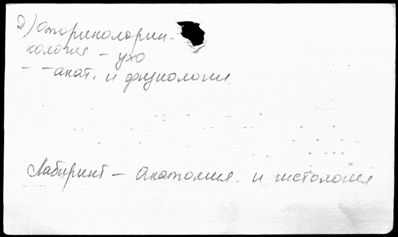 2) Оторинолярин-
кология – ухо
– – анат. и физиология
Лабиринт – анатомия и гистология